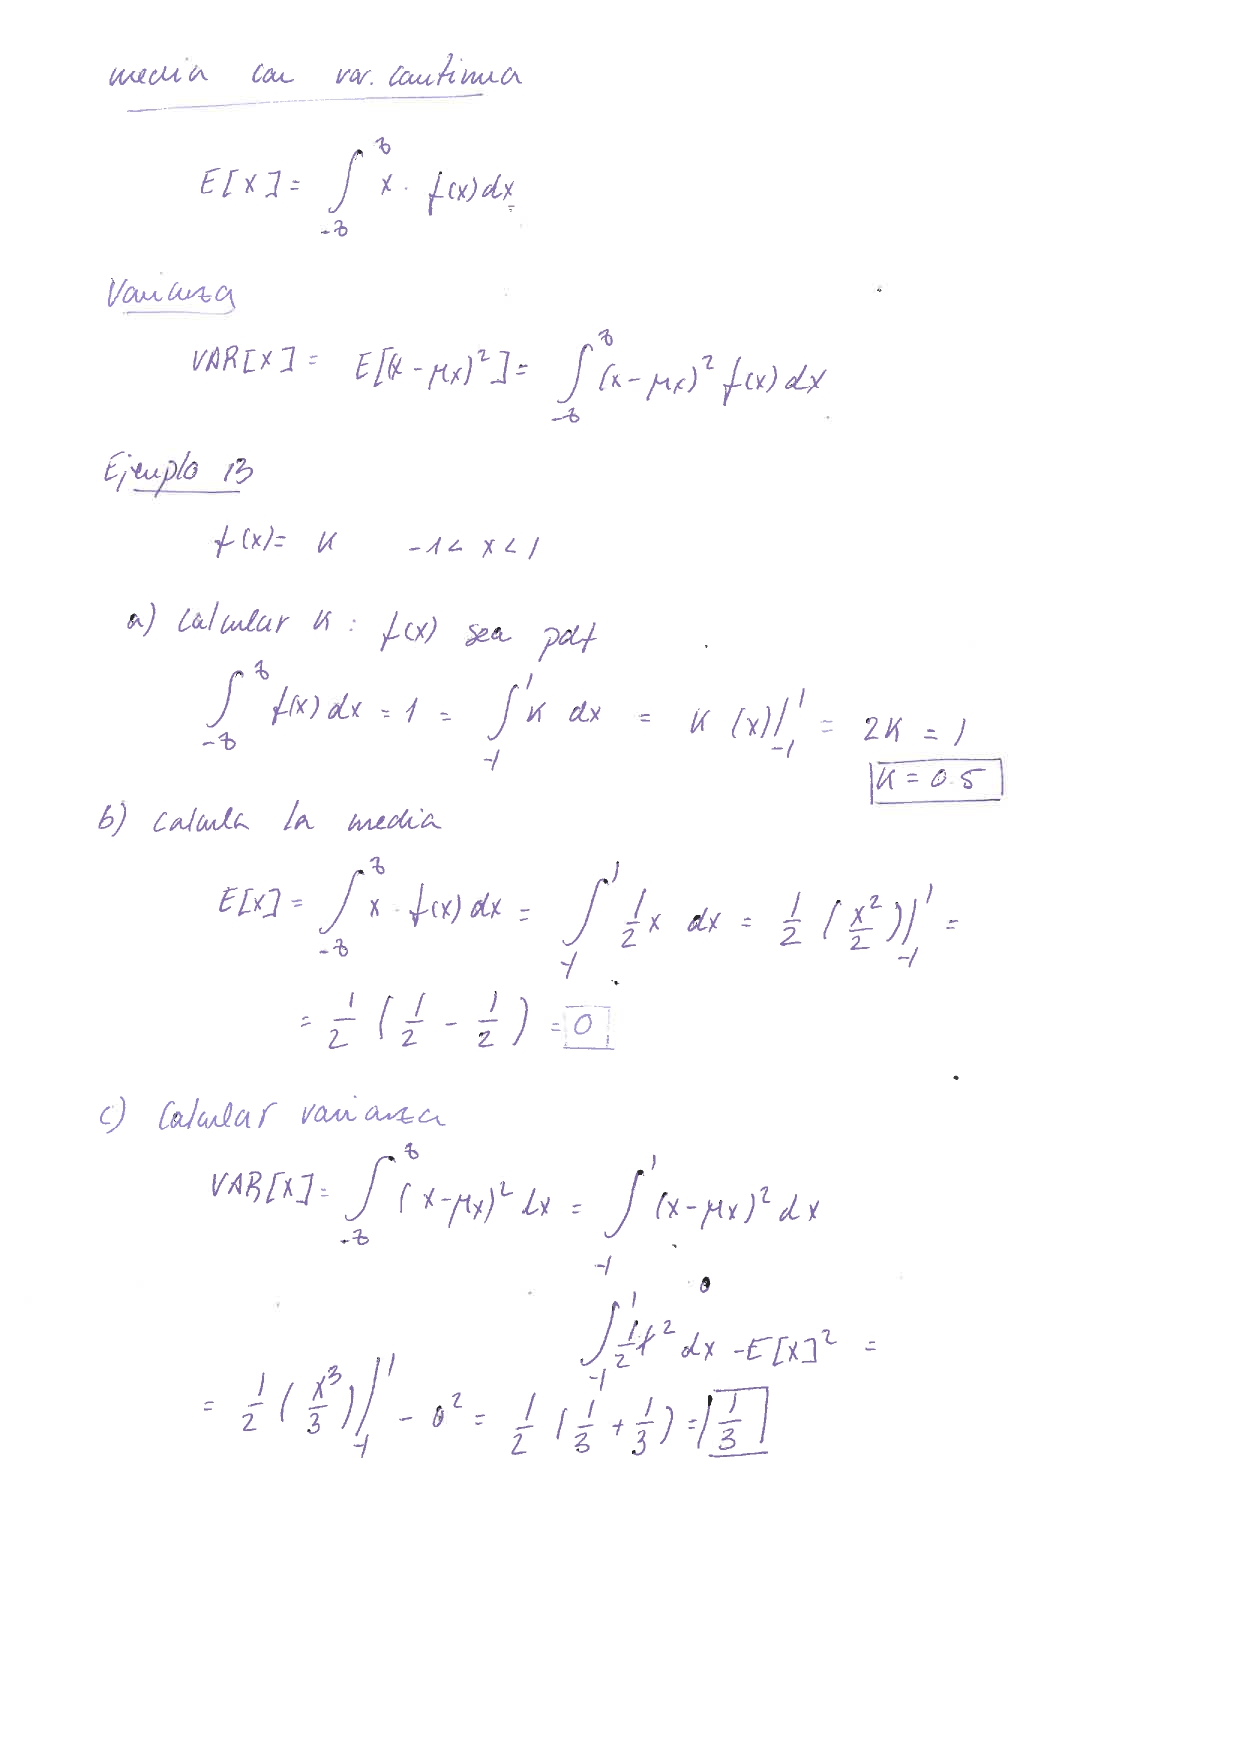 media con var. continua
E[X] = ∫_{-∞}^{∞} x · f(x) dx
Varianza
VAR[X] = E[(X - μx)²] = ∫_{-∞}^{∞} (x - μx)² f(x) dx
Ejemplo 13
f(x) = K -1 < x < 1
a) Calcular K : f(x) sea pdf
∫_{-∞}^{∞} f(x) dx = 1 = ∫_{-1}^{1} K dx = K (x)|_{-1}^{1} = 2K = 1
K = 0.5
b) Calcula la media
E[X] = ∫_{-∞}^{∞} x · f(x) dx = ∫_{-1}^{1} 1/2 x dx = 1/2 (x²/2)|_{-1}^{1} =
= 1/2 (1/2 - 1/2) = 0
c) Calcular varianza
VAR[X] = ∫_{-∞}^{∞} (x - μx)² dx = ∫_{-1}^{1} (x - μx)² dx
∫_{-1}^{1} 1/2 x² dx - E[X]² =
= 1/2 (x³/3)|_{-1}^{1} - 0² = 1/2 (1/3 + 1/3) = 1/3